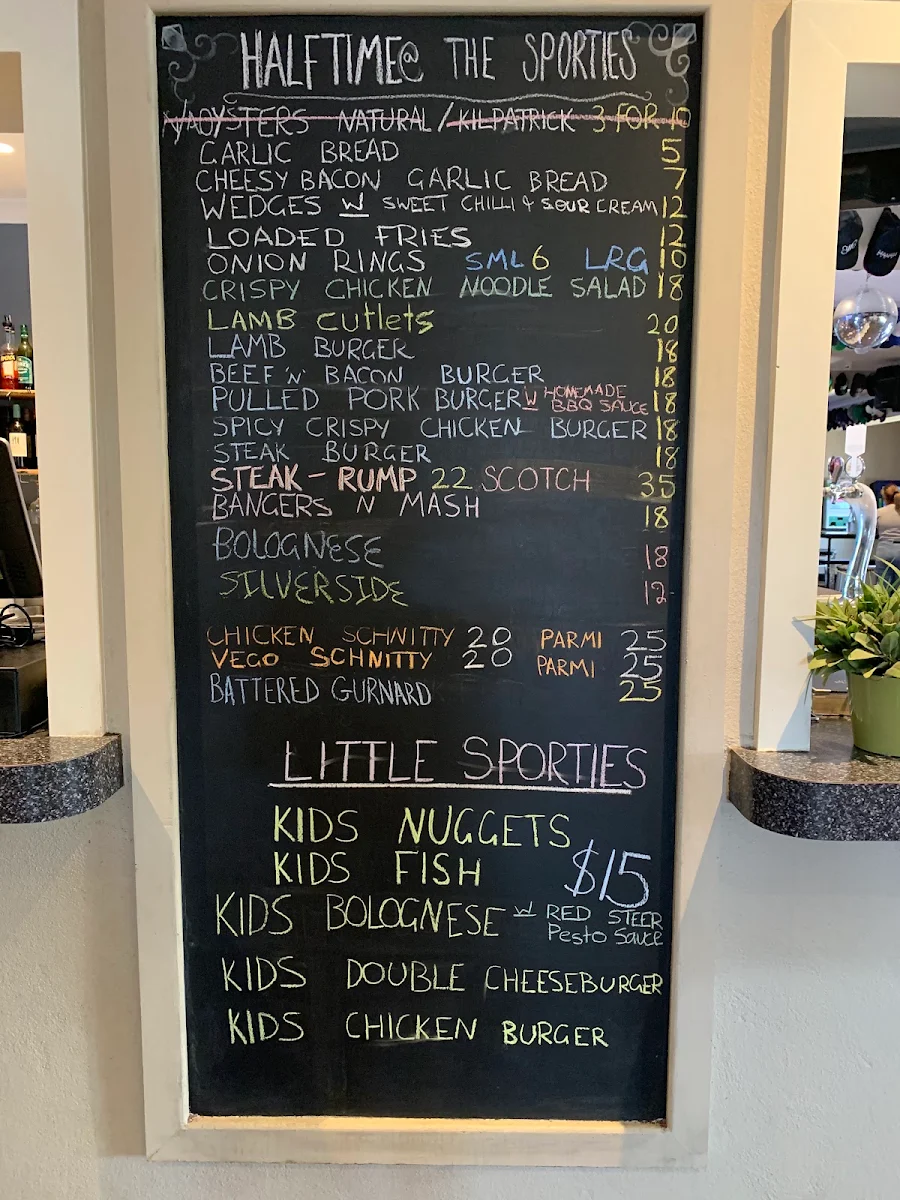 HALFTIME@ THE SPORTIES
N/A OYSTERS NATURAL/KILPATRICK 3 FOR 10
GARLIC BREAD 5
CHEESY BACON GARLIC BREAD 7
WEDGES W SWEET CHILLI & SOUR CREAM 12
LOADED FRIES 12
ONION RINGS SML 6 LRG 10
CRISPY CHICKEN NOODLE SALAD 18
LAMB cutlets 20
LAMB BURGER 18
BEEF 'N' BACON BURGER 18
PULLED PORK BURGER W HOMEMADE BBQ SAUCE 18
SPICY CRISPY CHICKEN BURGER 18
STEAK BURGER 18
STEAK - RUMP 22 SCOTCH 35
BANGERS N MASH 18
BOLOGNESE 18
SILVERSIDE 12
CHICKEN SCHNITTY 20 PARMI 25
VEGO SCHNITTY 20 PARMI 25
BATTERED GURNARD 25
LITTLE SPORTIES
KIDS NUGGETS
KIDS FISH $15
KIDS BOLOGNESE W RED STEER Pesto Sauce
KIDS DOUBLE CHEESEBURGER
KIDS CHICKEN BURGER